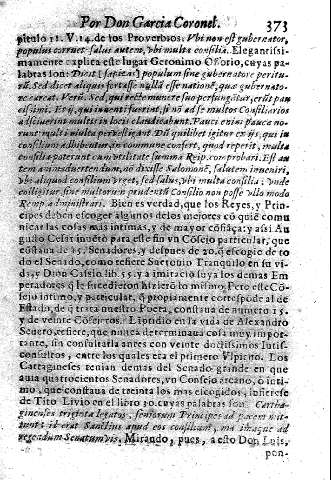 Por Don Garcia Coronel. 373
pitulo 11. V. 14. de los Proverbios: Vbi non est gubernator,
populus corruet: salus autem, vbi multa consilia. Elegantissi-
mamente explica este lugar Geronimo Ossorio, cuyas pa-
labras son: Dixit [sapiens] populum sine gubernatore peritu-
rũ. Sed dicet aliquis fortasse nullã esse nationẽ, quæ gubernato-
re careat. Verũ. Sed, qui recte munere suo perfungãtur, erũt pau
cissimi. Ferè, qui inuenti fuerint, si nõ ad se multos Consiliarios
adsciuerint multis in locis claudicabunt. Pauci enim pauca no-
runt multi multa peruestigant. Dũ quilibet igitur eorũ, qui in
consilium adhibentur in commune confert, quod reperit, multa
consilia poterunt cum vtilitate summa Reip. comprobari. Est au
tem animaduertendum, eo dixisse Salomonẽ, salutem inueniri,
vbi aliquod consilium vrget, sed salus, vbi multa consilia; vnde
colligitur, sine multorum prudentũ Consilio non posse vllo modo
Remp. administrari. Bien es verdad, que los Reyes, y Prin-
cipes deben escoger algunos de los mejores cõ quiẽ comu-
nicar las cosas mas intimas, y de mayor cõfiãça: y assi Au-
gusto Cesar inuẽtò para este fin vn Cõsejo particular, que
costaua de 15. Senadores, y despues de 20. õ escogio de to
do el Senado, como refiere Suetonio Tranquilo en su vi-
da, y Dion Casio lib. 55. y a imitacio suya los demas Em
peradores q̃ le sucedieron hiziero lo mismo. Pero este Cõ-
sejo intimo, y particular, q̃ propiamente corresponde al de
Estado, de q̃ trata nuestro Poeta, constaua de numero 15.
y de veinte Cõsejeros. Elio Lãpridio en la vida de Alexandro
Seuero, refiere, que nunca determinaua cosa muy impor-
tante, sin consultarla antes con veinte doctissimos Iuris-
consultos, entre los quales era el primero Vlpiano. Los
Cartagineses tenian demas del Senado grande en que
auia quatrocientos Senadores, vn Consejo arcano, ò inti-
mo, que constaua de treinta los mas escogidos, infierese
de Tito Liuio en el libro 30. cuyas palabras son: Cartha-
ginenses triginta legatos, seniorum Principes ad pacem mit-
tunt: id erat Sanctius apud eos consilium, ma ximaque ad
regendum Senatum vis, Mirando, pues, a esto Don Luis,
pon-